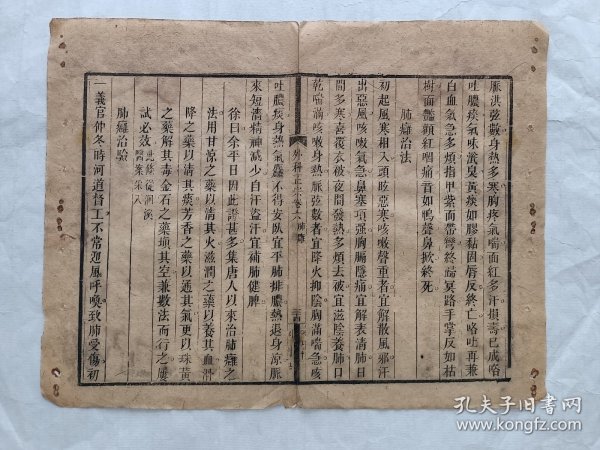 脈洪弦數身熱多寒胸疼氣喘面紅多汗損壽已成咯
吐膿痰氣味濺臭黃痰如膠黏固唇反終亡咯吐再兼
白血氣急多煩指甲紫而帶彎終歸冥路手掌反如枯
樹面豔顴紅咽痛音如鴨聲鼻掀終死
肺癰治法
初起風寒相入頭眩惡寒咳嗽聲重者宜解散風邪汗
出惡風咳嗽氣急鼻塞項強胸膈隱痛宜解表清肺日
間多寒喜覆衣被夜間發熱多煩去被宜滋陰養肺口
乾喘滿咳嗽身熱脈弦數者宜降火抑陰胸滿喘急咳
外科正宗卷六 肺癰
吐膿痰身熱氣麤不得安臥宜平肺排膿熱退身涼脈
來短濇精神減少自汗盜汗宜補肺健脾
徐曰余平日因此證甚多集唐人以來治肺癰之
法用甘涼之藥以清其火滋潤之藥以養其血滑
降之藥以清其痰芳香之藥以通其氣更以珠黃
之藥解其毒金石之藥填其空兼數法而行之屢
試必效
此條從洄溪
醫案采入
肺癰治驗
一義官仲冬時河道督工不常迎風呼喚致肺受傷初
孔夫子旧書网
www.kongfz.com